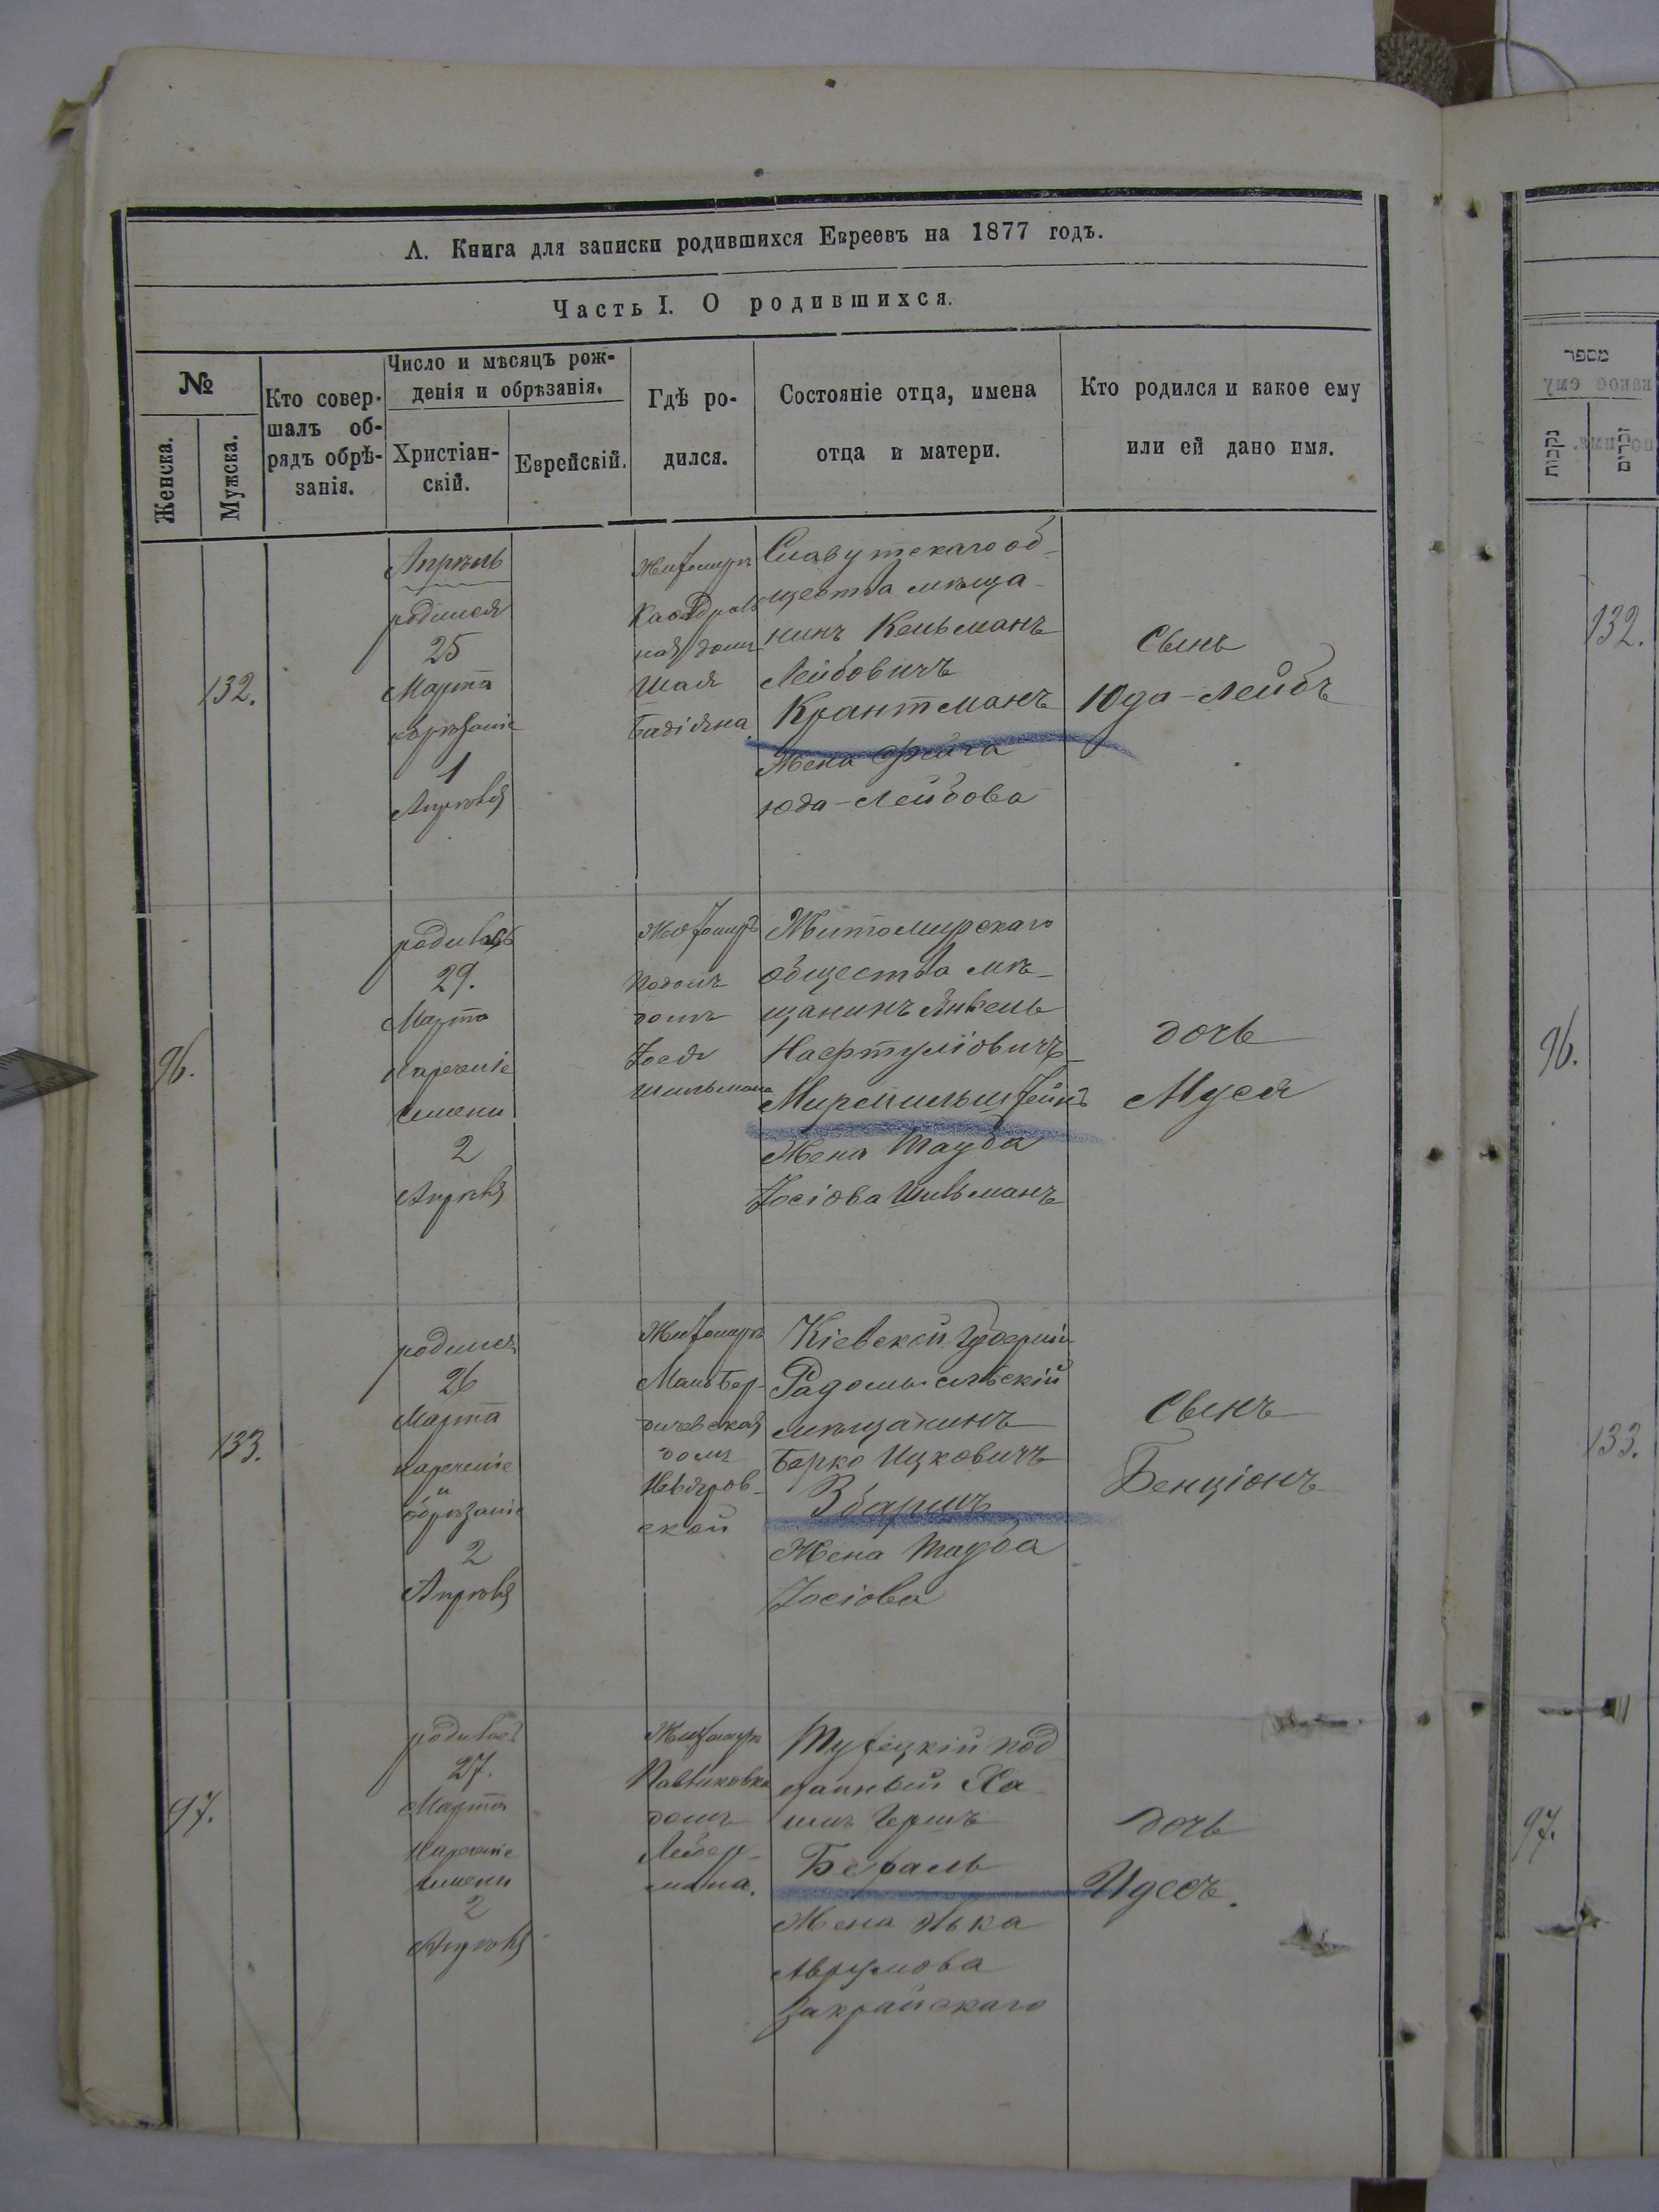 А. Книга для записки родившихся Евреевъ на 1877 годъ.
Часть I. О родившихся.
№
Женска.
Мужска.
Кто совер-
шалъ об-
рядъ обрѣ-
занія.
Число и мѣсяцъ рож-
денія и обрѣзанія.
Христіан-
скій.
Еврейскій.
Гдѣ ро-
дился.
Состояніе отца, имена
отца и матери.
Кто родился и какое ему
или ей дано имя.
132.
Апрѣль
родился
25
Марта
обрѣзаніе
1
Апрѣля
Житомиръ
Каѳедраль
ная домъ
Шая
Славутскаго об-
щества мѣща-
нинъ Кельманъ
Лейбовичъ
Крантманъ
Жена Фейга
Юда-Лейбова
Сынъ
Юда-Лейбъ
96.
родилась
29.
Марта
нареченіе
имени
2
Апрѣля
Житомиръ
Подолъ
домъ
Іося
Шильмана
Житомирскаго
общества мѣ-
щанинъ Янкель
Нафтуліовичъ
Мирмильштейнъ
Жена Тауба
Іосіова Шильманъ
дочь
Муся
133.
родился
26
Марта
нареченіе
и
обрѣзаніе
2
Апрѣля
Житомиръ
Мало Бер-
дичевская
домъ
ской
Кіевской Губерніи
Радомысльскій
мѣщанинъ
Берко Ицковичъ
Збаришъ
Жена Тауба
Іосіова
Сынъ
Бенціонъ
97.
родилась
27.
Марта
нареченіе
имени
2
Апрѣля
Житомиръ
Павликовка
домъ
Либер-
мана.
Турецкій под
данный Ха
имъ Гершъ
Жена Элька
Аврумова
Закрайскаго
дочь
Идесъ.
מספר
נקבות
זכרים
132.
96.
133.
97.